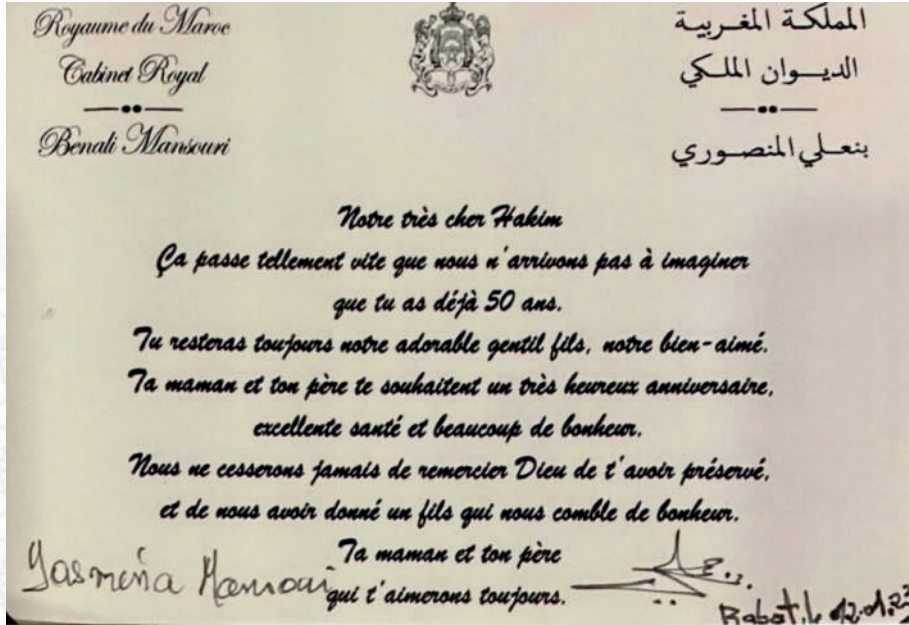 Royaume du Maroc
Cabinet Royal
Benali Mansouri
المملكة المغربية
الديوان الملكي
بنعلي المنصوري
Notre très cher Hakim
Ça passe tellement vite que nous n'arrivons pas à imaginer
que tu as déjà 50 ans.
Tu resteras toujours notre adorable gentil fils, notre bien-aimé.
Ta maman et ton père te souhaitent un très heureux anniversaire,
excellente santé et beaucoup de bonheur.
Nous ne cesserons jamais de remercier Dieu de t'avoir préservé,
et de nous avoir donné un fils qui nous comble de bonheur.
Ta maman et ton père
qui t'aimerons toujours.
Yasmina Mansouri
Rabat, le 12.01.23